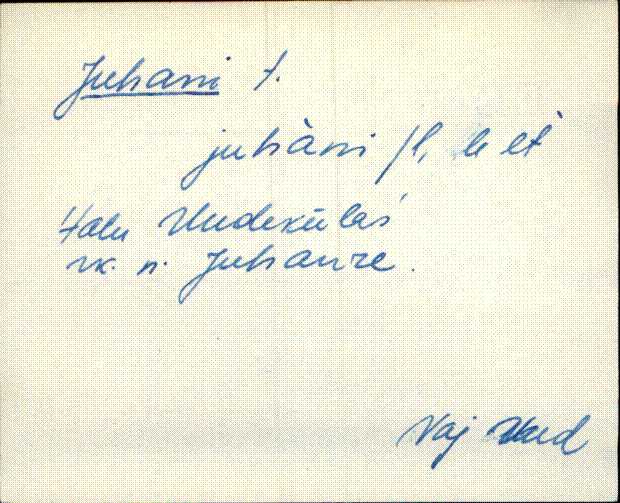 Juhani t.
juhàni /l, le lt
Talu Uudekülas
vk. n. Juhanre.
Vaj Uued